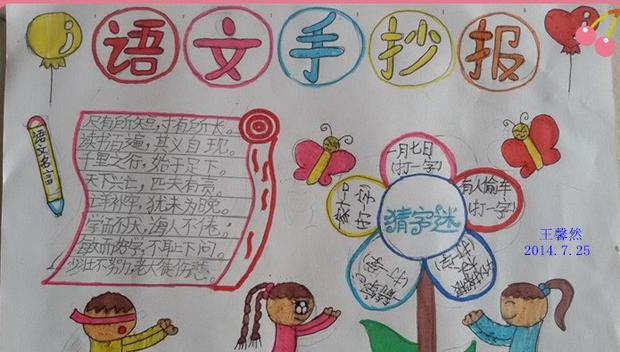 语文手抄报
语文名言
尺有所短,寸有所长。
读书百遍,其义自现。
千里之行,始于足下。
天下兴亡,匹夫有责。
亡羊补牢,犹未为晚。
学而不厌,诲人不倦。
敏而好学,不耻下问。
少壮不努力,老大徒伤悲
猜字谜
一月七日
(打一字)
有火偷车
(打一字)
一家十口
(打一字)
王馨然
2014.7.25